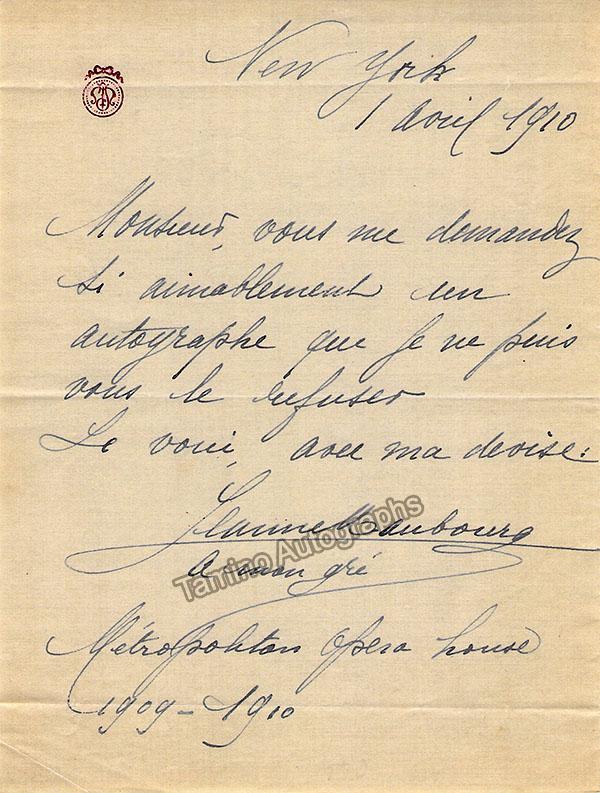 New York
1 Avril 1910
Monsieur, vous me demandez
si aimablement un
autographe que je ne puis
vous le refuser
Le voici, avec ma devise:
Jeanne Maubourg
A mon gré
Tamino Autographs
Métropolitan Opera house
1909-1910